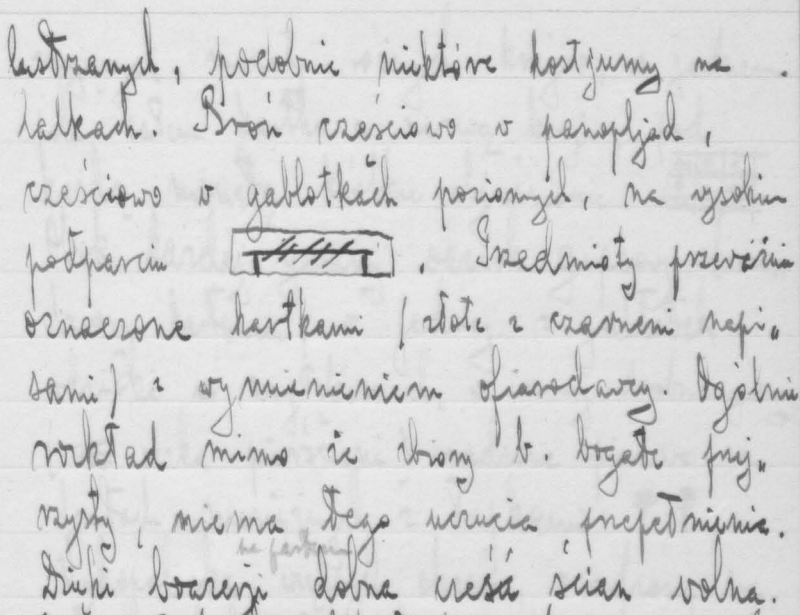 lustrzanych, podobnie niektóre kostjumy na
lalkach. Broń częściowo w panopljach,
częściowo w gablotkach poziomych, na wysokim
podparciu . Przedmioty przeważnie
oznaczone kartkami / złote z czarnemi napi„
sami / z wymienieniem ofiarodawcy. Ogólnie
rozkład mimo że zbiory b. bogate przej„
rzysty, niema tego uczucia przepełnienia.
Dzięki boazerji dolna część ścian wolna.